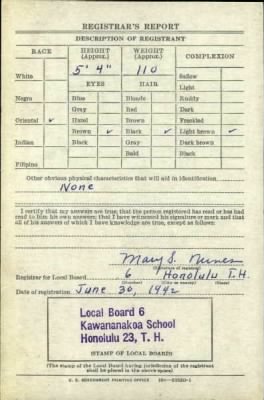 REGISTRAR'S REPORT
DESCRIPTION OF REGISTRANT
RACE HEIGHT (Approx.) WEIGHT (Approx.) COMPLEXION
White 5' 4" 110 Sallow
EYES HAIR Light
Negro Blue Blonde Ruddy
Gray Red Dark
Oriental ✓ Hazel Brown Freckled
Brown ✓ Black ✓ Light brown ✓
Indian Black Gray Dark brown
Bald Black
Filipino
Other obvious physical characteristics that will aid in identification
None
I certify that my answers are true; that the person registered has read or has had
read to him his own answers; that I have witnessed his signature or mark and that
all of his answers of which I have knowledge are true, except as follows:
Mary S. Nunes
(Signature of registrar)
Registrar for Local Board 6 Honolulu T.H.
(Number) (City or county) (State)
Date of registration June 30, 1942
Local Board 6
Kawananakoa School
Honolulu 23, T. H.
STAMP OF LOCAL BOARD
(The stamp of the Local Board having jurisdiction of the registrant
shall be placed in the above space)
U. S. GOVERNMENT PRINTING OFFICE